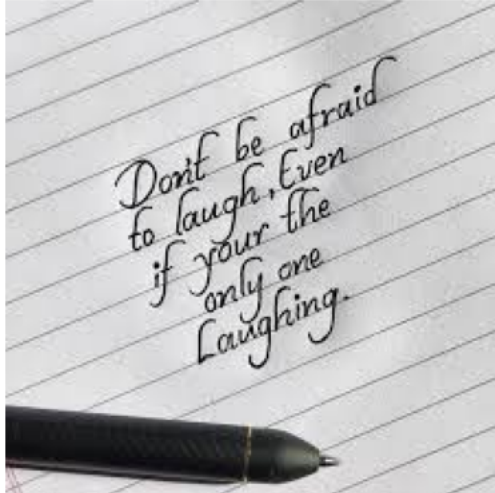 Don't be afraid
to laugh, Even
if your the
only one
Laughing.